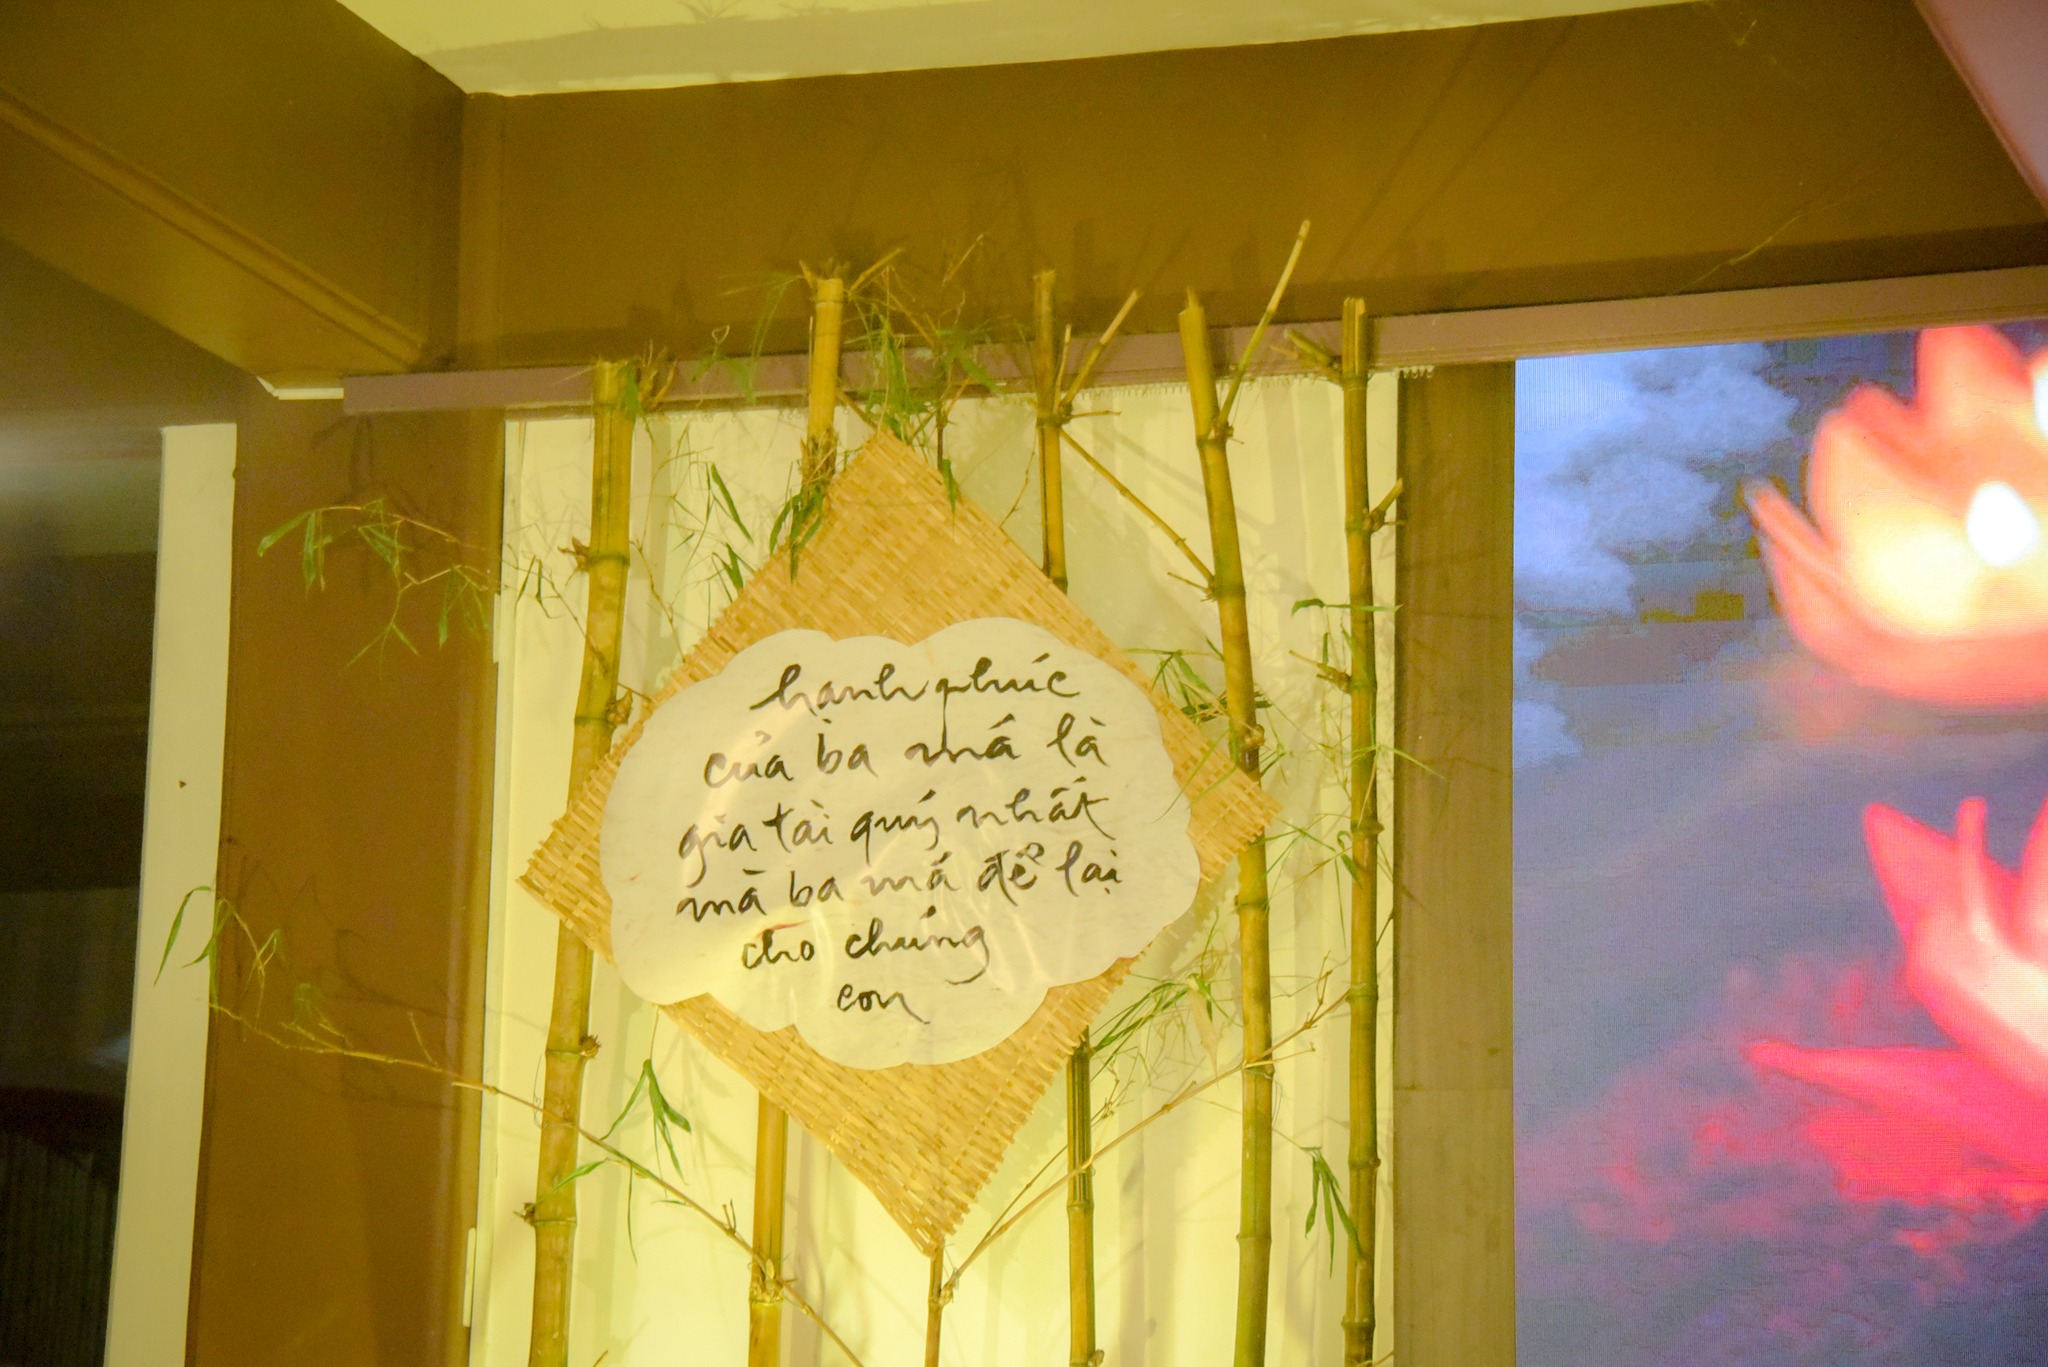 hạnh phúc
của ba má là
gia tài quý nhất
mà ba má để lại
cho chúng
con